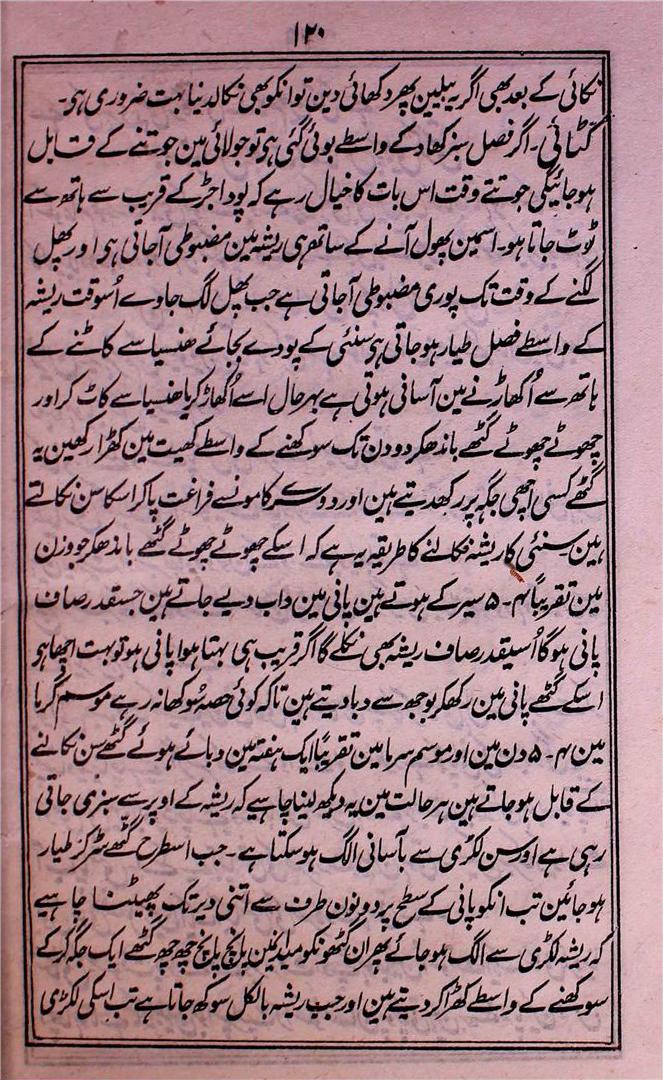 ۱۲۰
نکائی کے بعد بھی اگر یہ بیلین پھر دکھائی دین تو انکو بھی نکالدینا بہت ضروری ہی۔
کٹائی۔ اگر فصل سبز کھاد کے واسطے بوئی گئی ہی تو جولائی مین جوتنے کے قابل
ہوجائیگی جوتتے وقت اس بات کا خیال رہے کہ پودا جڑ کے قریب سے ہاتھ سے
ٹوٹ جاتا ہو۔ اسمین پھول آنے کے ساتھ ہی ریشہ مین مضبوطی آجاتی ہی اور پھل
لگنے کے وقت تک پوری مضبوطی آجاتی ہے جب پھل لگ جاوے اُسوقت ریشہ
کے واسطے فصل طیار ہوجاتی ہی سنئی کے پودے بجائے ھنسیا سے کاٹنے کے
ہاتھ سے اُکھاڑنے مین آسانی ہوتی ہے بہرحال اسے اُکھاڑ کر یا ھنسیا سے کاٹ کر اور
چھوٹے چھوٹے گٹھے باندھکر دو دن تک سوکھنے کے واسطے کھیت مین کھڑا رکھین یہ
گٹھے کسی اچھی جگہ پر رکھدیتے ہین اور دوسرے کامونسے فراغت پاکر اسکا سن نکالتے
ہین۔ سنئی کا ریشہ نکالنے کا طریقہ یہ ہے کہ اسکے چھوٹے چھوٹے گٹھے باندھکر جو وزن
مین تقریباً ۴۔۵ سیر کے ہوتے ہین پانی مین داب دیے جاتے ہین جسقدر صاف
پانی ہوگا اُسیقدر صاف ریشہ بھی نکلے گا اگر قریب ہی بہتا ہوا پانی ہو تو بہت اچھا ہو
اسکے گٹھے پانی مین رکھکر بوجھ سے دبا دیتے ہین تاکہ کوئی حصہ سُوکھا نہ رہے موسم گرما
مین ۴۔۵ دن مین اور موسم سرما مین تقریباً ایک ہفتہ مین دبائے ہوئے گٹھے سن نکالنے
کے قابل ہوجاتے ہین ہر حالت مین یہ دیکھ لینا چاہیے کہ ریشہ کے اوپر سے سبزی جاتی
رہی ہے اور سن لکڑی سے بآسانی الگ ہوسکتا ہے۔ جب اسطرح گٹھے سڑکر طیار
ہوجائین تب انکو پانی کے سطح پر دونون طرف سے اتنی دیر تک پھیٹنا چاہیے
کہ ریشہ لکڑی سے الگ ہوجائے پھر ان گٹھونکو میدانمین پانچ پانچ چھ چھ گٹھے ایک جگہ کرکے
سوکھنے کے واسطے کھڑا کردیتے ہین اور جب ریشہ بالکل سوکھ جاتا ہے تب اسکی لکڑی